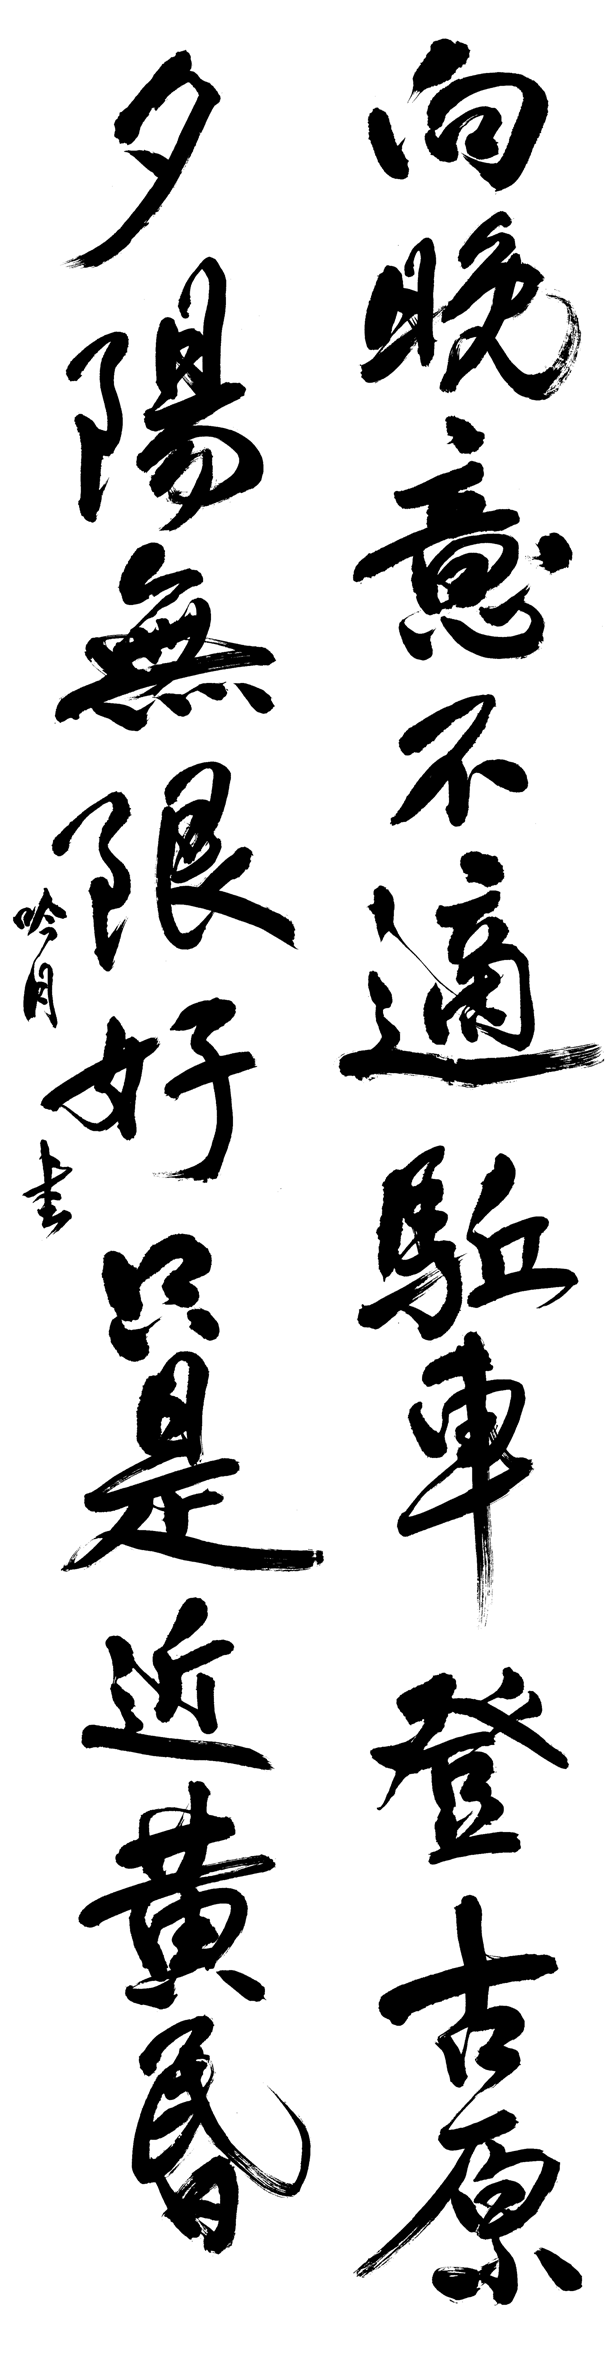 向晚意不適駈車登古原
夕陽無限好只是近黄昬
吟月書